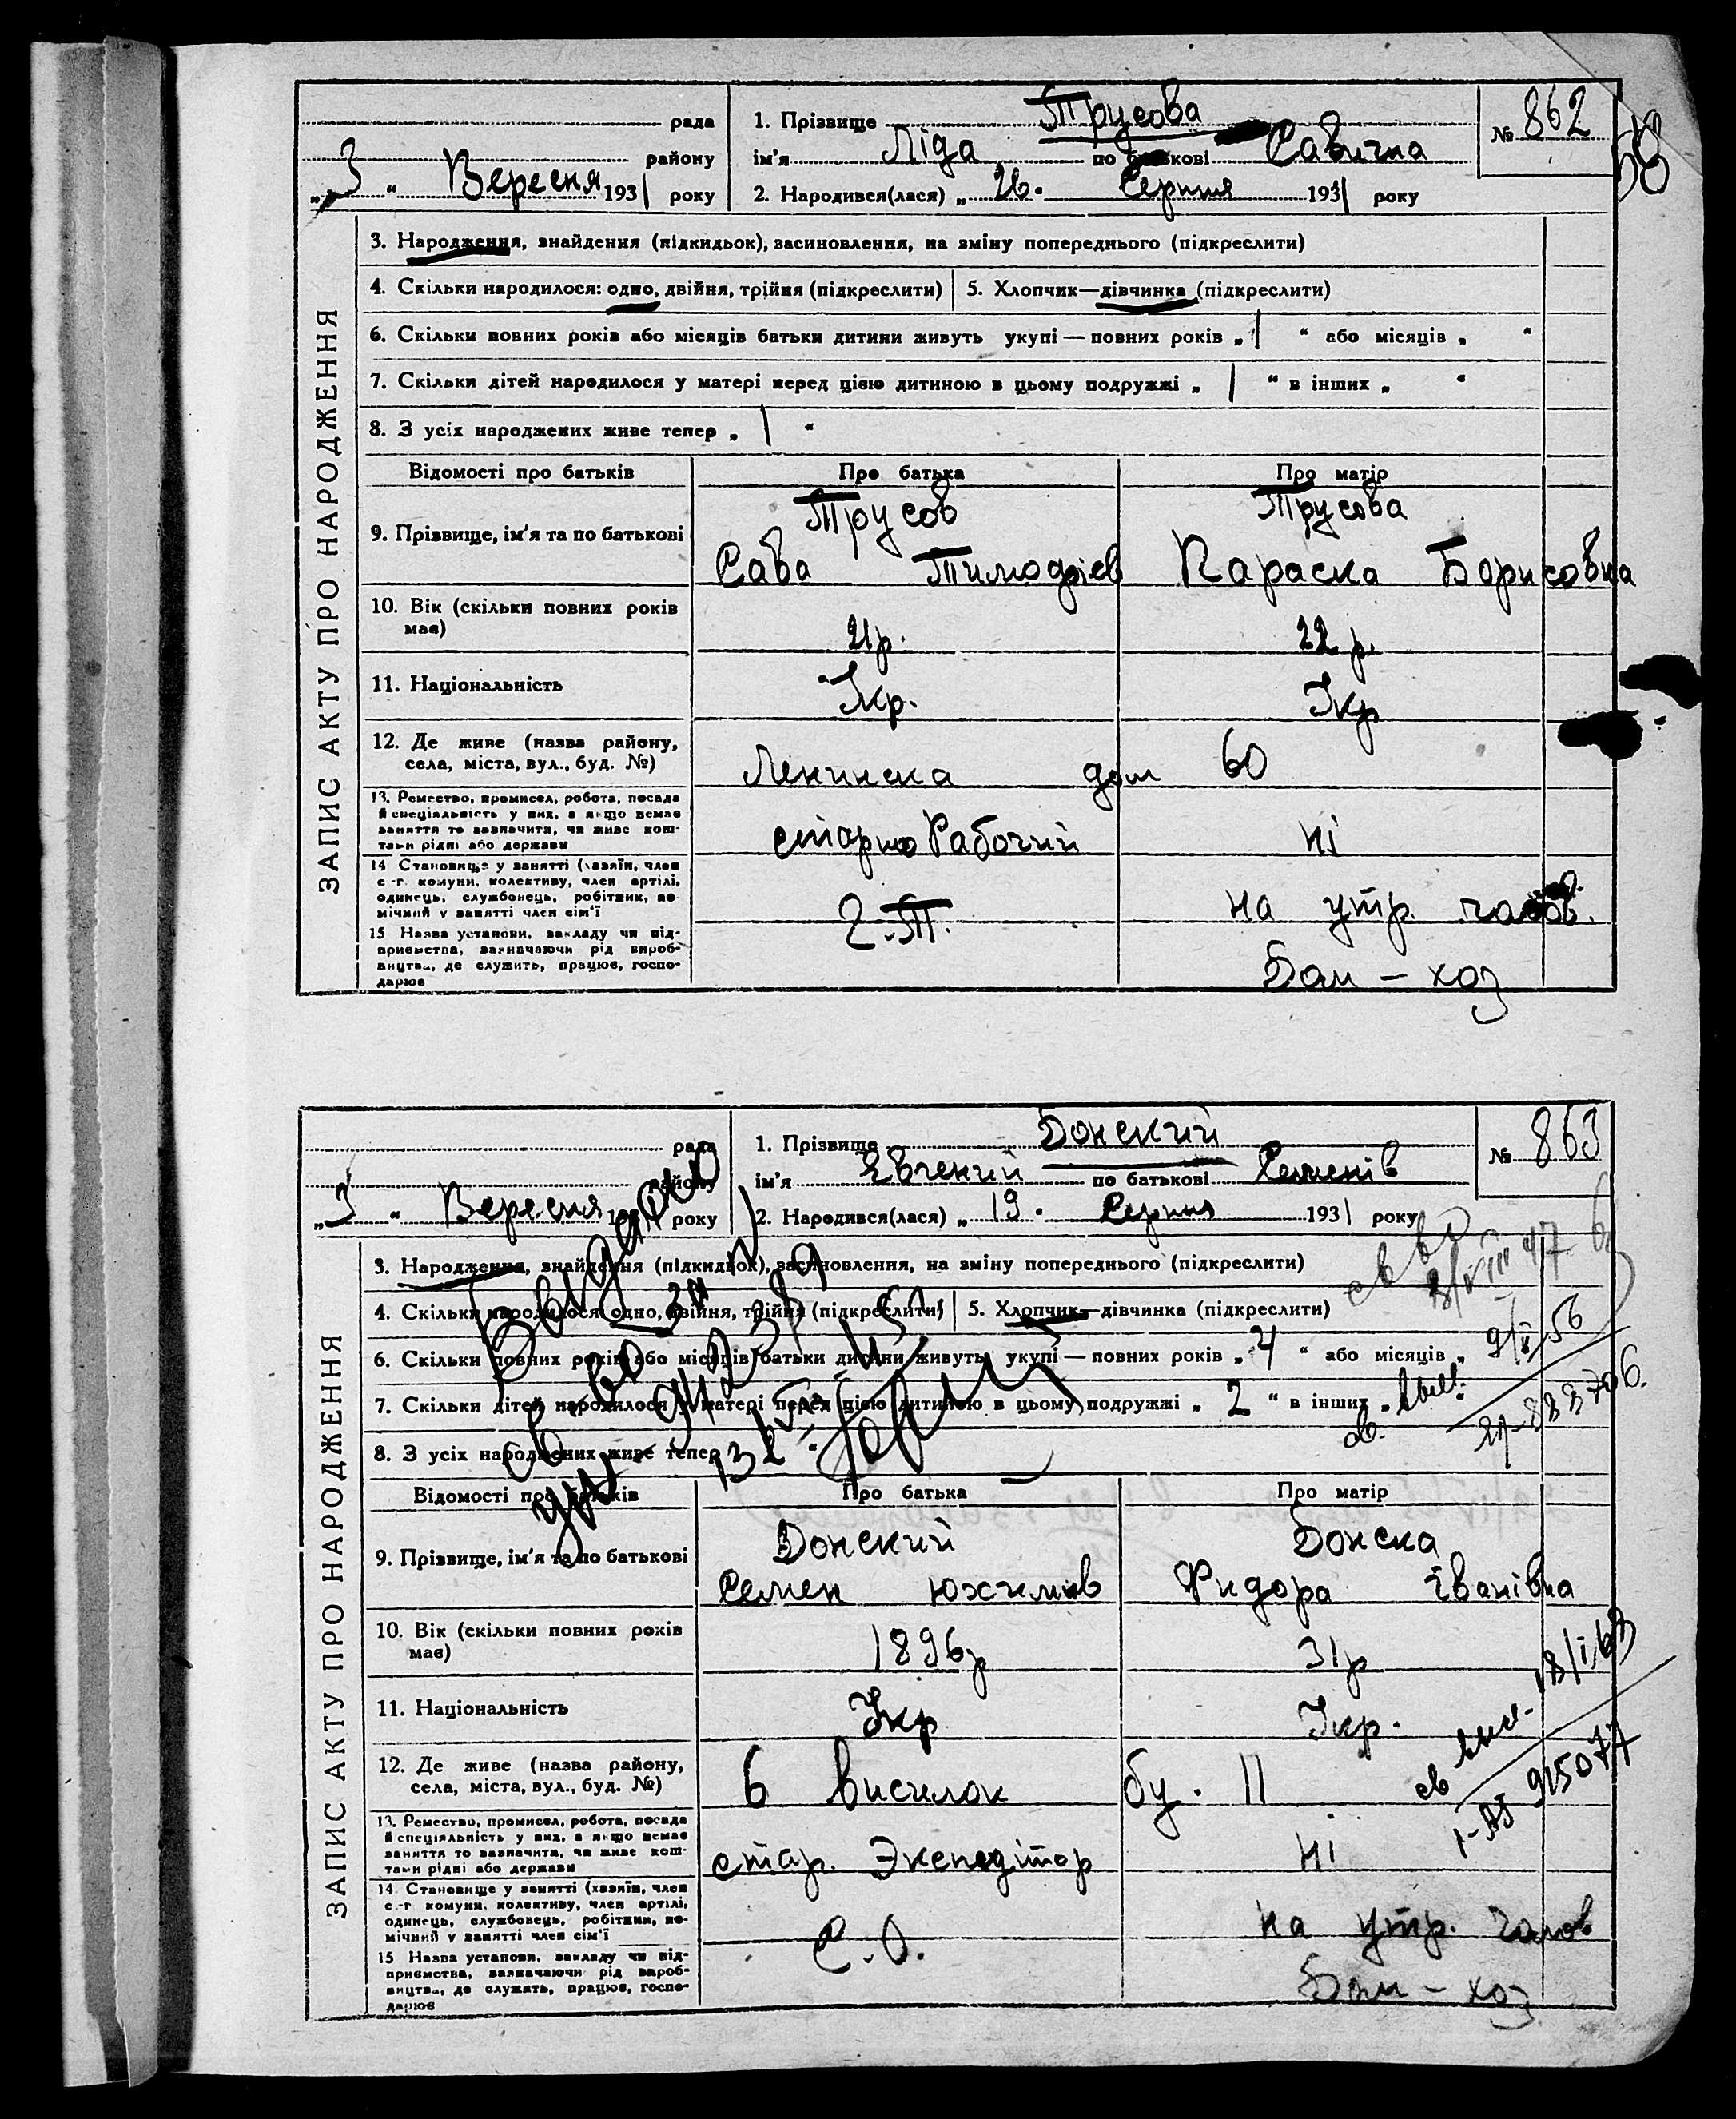 рада
1. Прізвище Трусова
№ 862
району
ім'я Ліда по батькові Савична
„3“ Вересня 1931 року
2. Народився(лася) „26. Серпня 1931 року
ЗАПИС АКТУ ПРО НАРОДЖЕННЯ
3. Народження, знайдення (підкидьок), засиновлення, на зміну попереднього (підкреслити)
4. Скільки народилося: одно, двійня, трійня (підкреслити)
5. Хлопчик—дівчинка (підкреслити)
6. Скільки повних років або місяців батьки дитини живуть укупі — повних років „1“ або місяців „ “
7. Скільки дітей народилося у матері перед цією дитиною в цьому подружжі „1“ в інших „ “
8. З усіх народжених живе тепер „1“
Відомості про батьків
Про батька
Про матір
9. Прізвище, ім'я та по батькові
Трусов
Сава Тимофіїв
Трусова
Параска Борисовна
10. Вік (скільки повних років
має)
21р.
22 р.
11. Національність
Укр.
Укр
12. Де живе (назва району,
села, міста, вул., буд. №)
Ленинска дом 60
13. Ремество, промисел, робота, посада
й спеціяльність у них, а якщо немає
заняття то зазначити, чи живе кош-
тами рідні або держави
Рабочий
ні
14 Становище у занятті (хазяїн, член
с.-г. комуни, колективу, член артілі,
одинець, службовець, робітник, по-
мічний у занятті член сім'ї
на утр.
15 Назва установи, закладу чи під-
приємства, зазначаючи рід вироб-
ництва, де служить, працює, госпо-
дарює
хоз
рада
1. Прізвище Донский
№ 863
району
ім'я Євгений по батькові Семенів
„3“ Вересня 1931 року
2. Народився(лася) „19. Серпня 1931 року
ЗАПИС АКТУ ПРО НАРОДЖЕННЯ
3. Народження, знайдення (підкидьок), засиновлення, на зміну попереднього (підкреслити)
4. Скільки народилося: одно, двійня, трійня (підкреслити)
5. Хлопчик—дівчинка (підкреслити)
6. Скільки повних років або місяців батьки дитини живуть укупі — повних років „4“ або місяців „
7. Скільки дітей народилося у матері перед цією дитиною в цьому подружжі „2“ в інших „
8. З усіх народжених живе тепер
Відомості про батьків
Про батька
Про матір
9. Прізвище, ім'я та по батькові
Донский
Семен Юхимів
Донска
Фидора Іванівна
10. Вік (скільки повних років
має)
1896р
31р
11. Національність
Укр
Укр.
12. Де живе (назва району,
села, міста, вул., буд. №)
6 висилок бу. 11
925077
13. Ремество, промисел, робота, посада
й спеціяльність у них, а якщо немає
заняття то зазначити, чи живе кош-
тами рідні або держави
стар. Экспедітор
ні
14. Становище у занятті (хазяїн, член
с.-г. комуни, колективу, член артілі,
одинець, службовець, робітник, по-
мічний у занятті член сім'ї
на утр. Чолов
15 Назва установи, закладу чи під-
приємства, зазначаючи рід вироб-
ництва, де служить, працює, госпо-
дарює
хоз